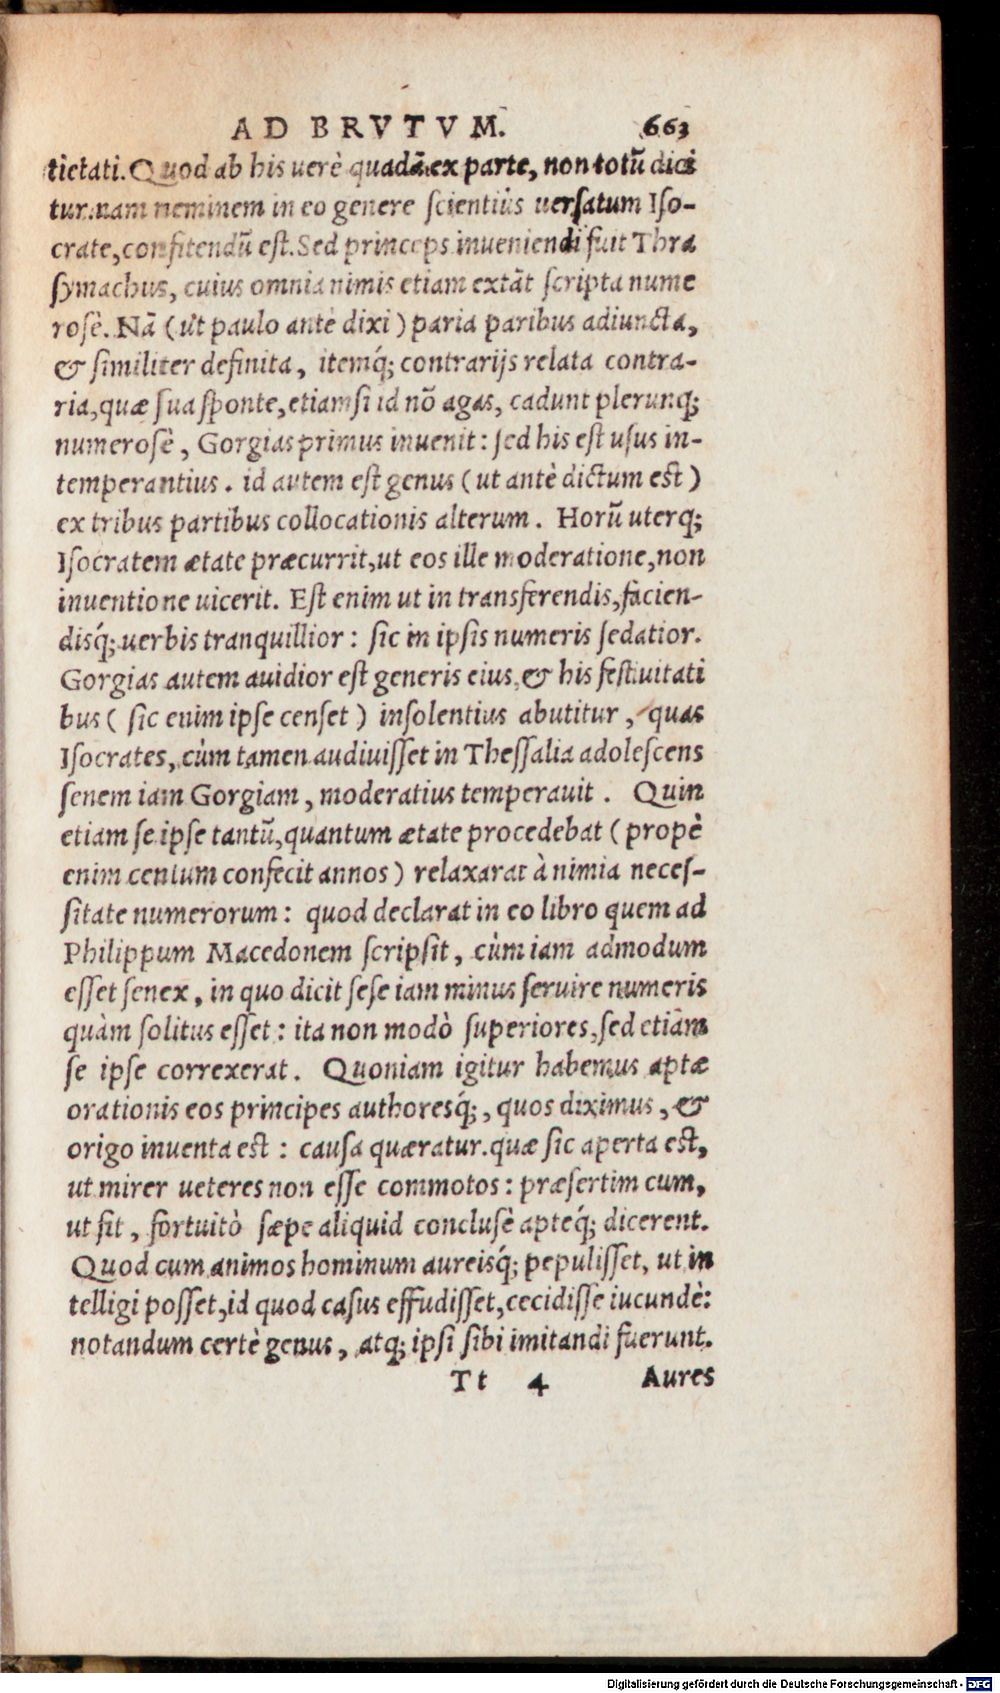 AD BRVTVM. 663
tietati. Quod ab his uerè quadā ex parte, non totū dici
tur. nam neminem in eo genere scientiùs uersatum Iso-
crate, confitendū est. Sed princeps inueniendi fuit Thra
symachus, cuius omnia nimis etiam extāt scripta nume
rosè. Nā (ut paulo antè dixi) paria paribus adiuncta,
& similiter definita, itemq́; contrarijs relata contra-
ria, quæ sua sponte, etiamsi id nō agas, cadunt plerunq;
numerosè, Gorgias primus inuenit: sed his est usus in-
temperantius. id autem est genus (ut antè dictum est)
ex tribus partibus collocationis alterum. Horū uterq;
Isocratem ætate præcurrit, ut eos ille moderatione, non
inuentione uicerit. Est enim ut in transferendis, facien-
disq́; uerbis tranquillior: sic in ipsis numeris sedatior.
Gorgias autem auidior est generis eius, & his festiuitati
bus (sic enim ipse censet) insolentius abutitur, quas
Isocrates, cùm tamen audiuisset in Thessalia adolescens
senem iam Gorgiam, moderatius temperauit. Quin
etiam se ipse tantū, quantum ætate procedebat (propè
enim centum confecit annos) relaxarat à nimia neces-
sitate numerorum: quod declarat in eo libro quem ad
Philippum Macedonem scripsit, cùm iam admodum
esset senex, in quo dicit sese iam minus seruire numeris
quàm solitus esset: ita non modò superiores, sed etiam
se ipse correxerat. Quoniam igitur habemus aptæ
orationis eos principes authoresq́;, quos diximus, &
origo inuenta est: causa quæratur. quæ sic aperta est,
ut mirer ueteres non esse commotos: præsertim cum,
ut fit, fortuitò sæpe aliquid conclusè apteq́; dicerent.
Quod cum animos hominum aureisq́; pepulisset, ut in
telligi posset, id quod casus effudisset, cecidisse iucundè:
notandum certè genus, atq; ipsi sibi imitandi fuerunt.
Tt 4 Aures
Digitalisierung gefördert durch die Deutsche Forschungsgemeinschaft - DFG